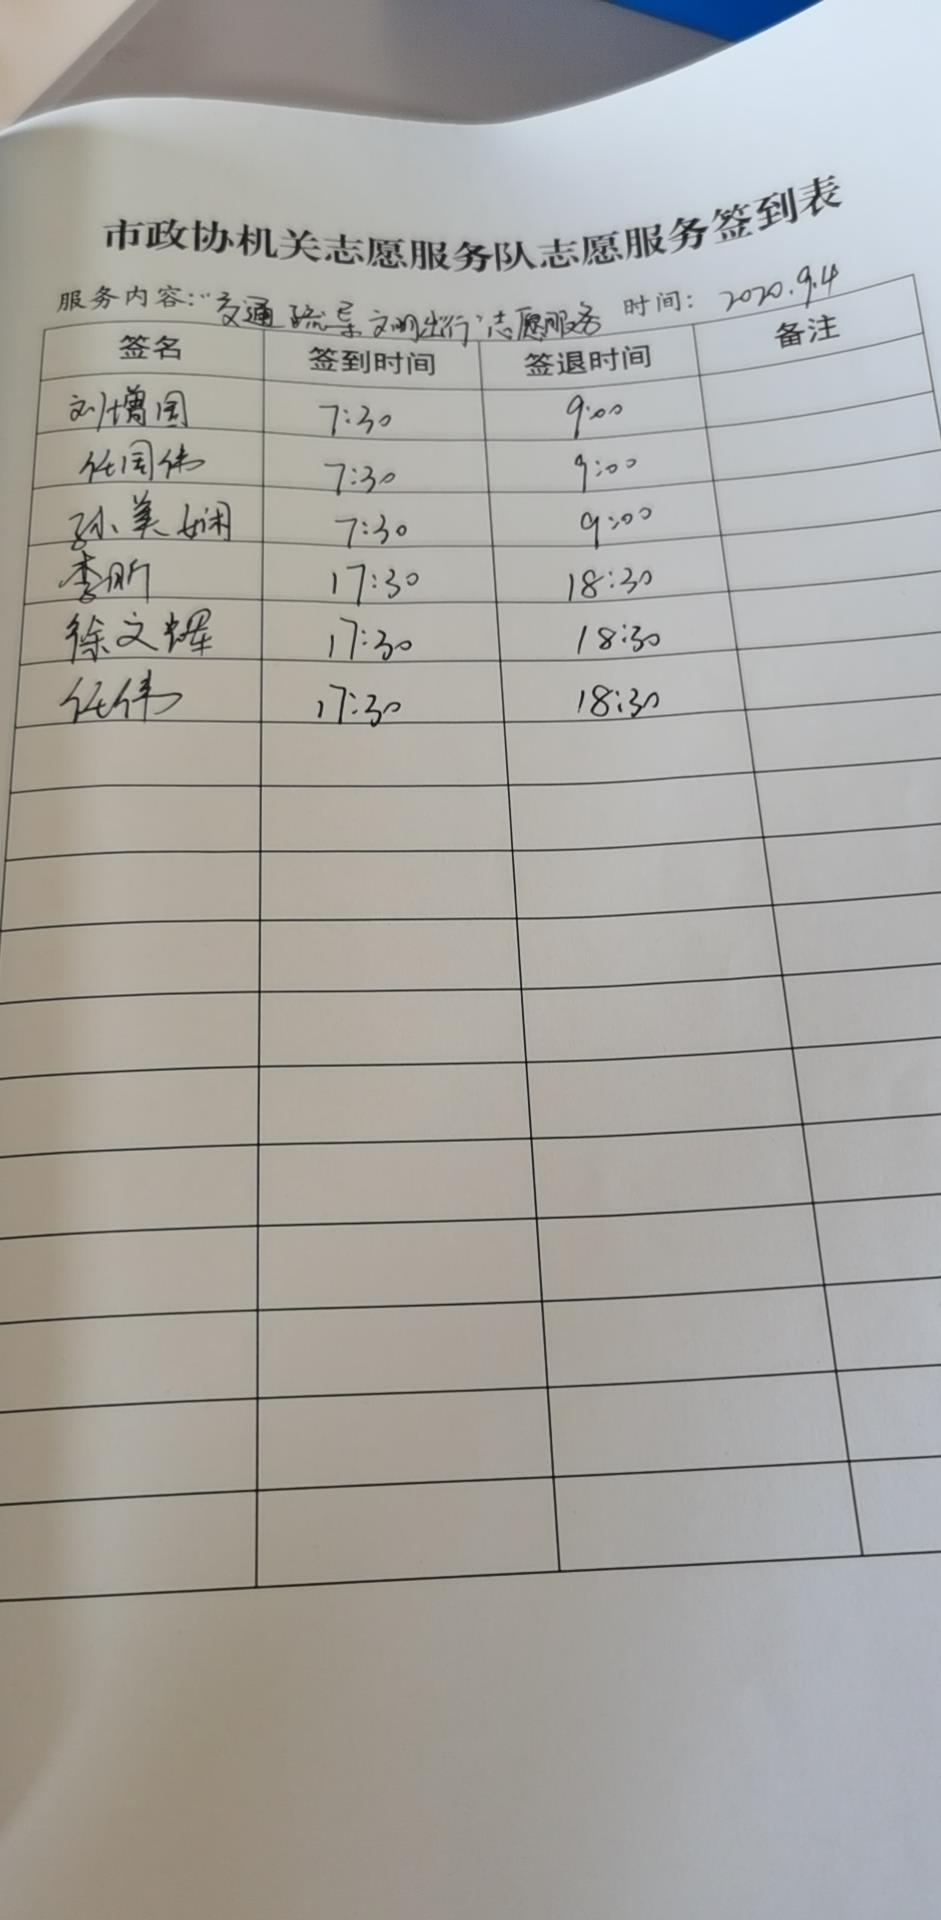 市政协机关志愿服务队志愿服务签到表
服务内容:“交通疏导 文明出行”志愿服务 时间: 2020.9.4
签名 签到时间 签退时间 备注
刘增国 7:30 9:00
任国伟 7:30 9:00
孙美娴 7:30 9:00
李昕 17:30 18:30
徐文耀 17:30 18:30
任伟 17:30 18:30